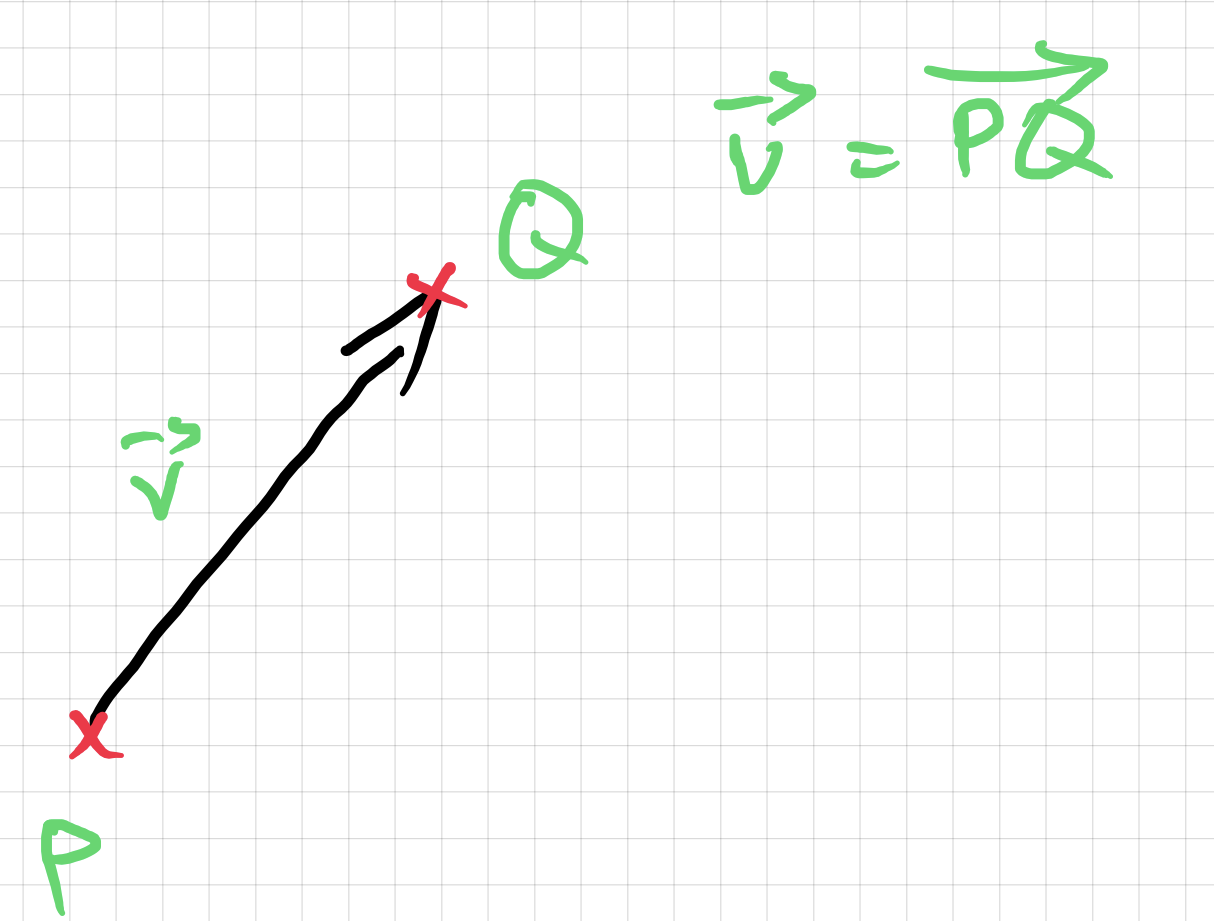 v⃗ = P⃗Q⃗
Q
v⃗
P